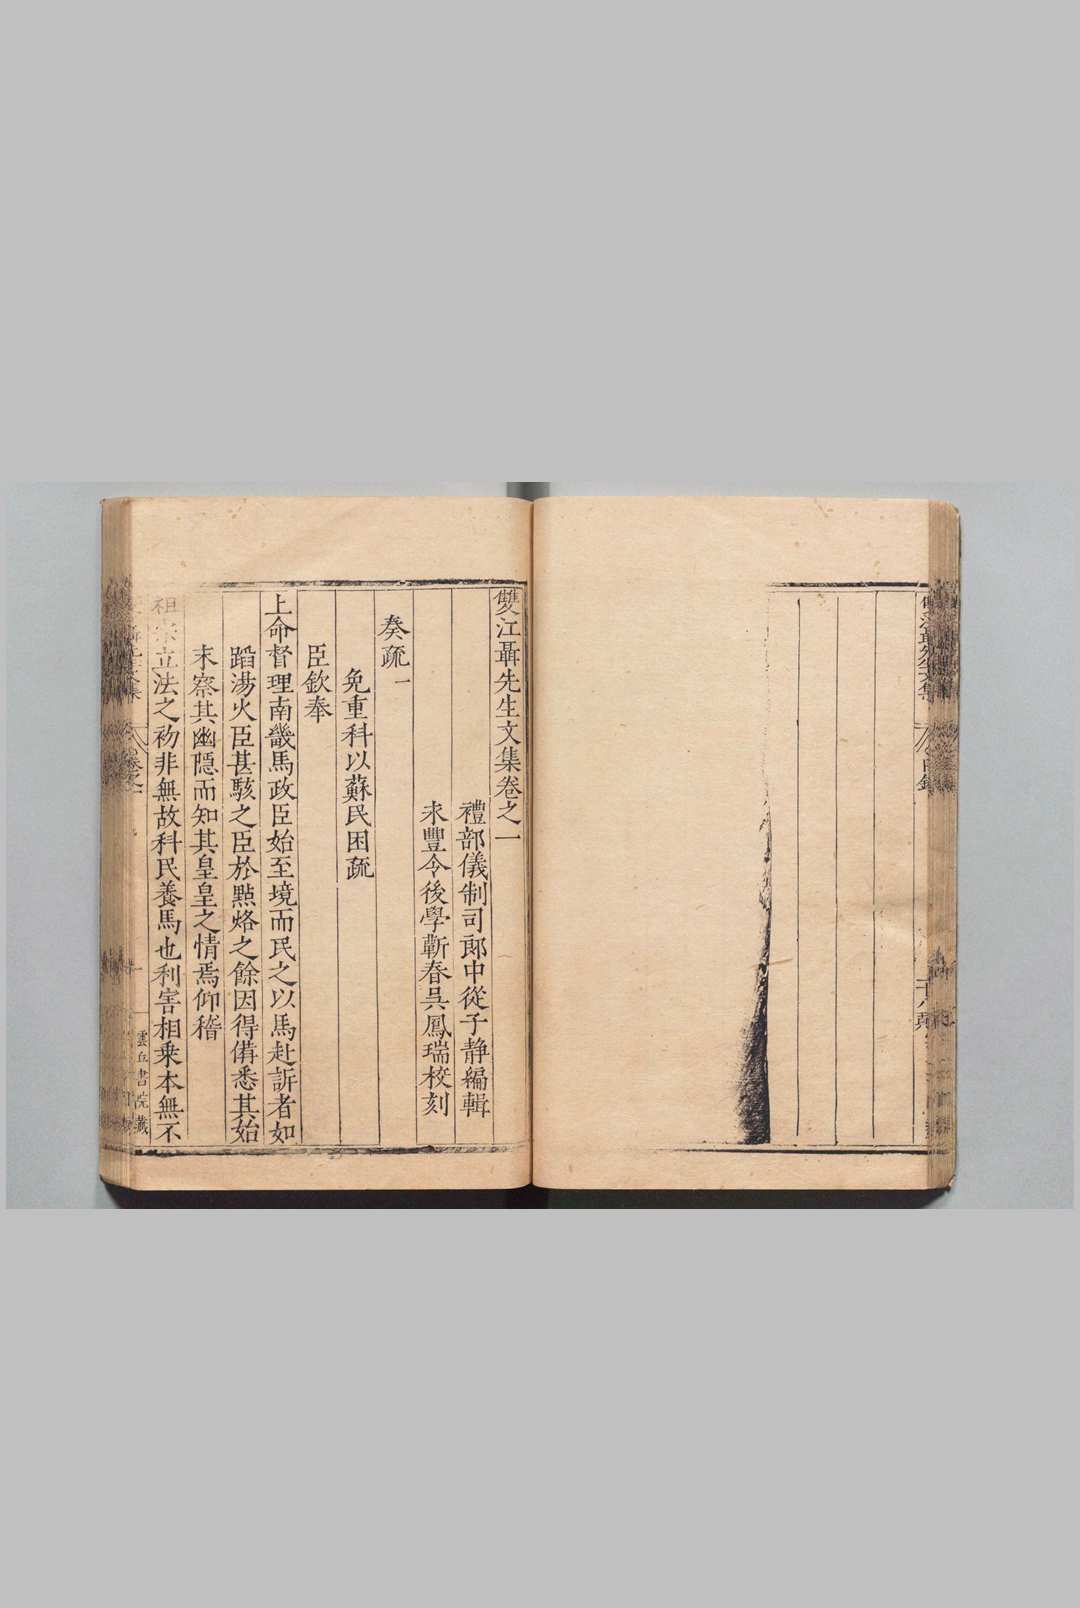 雙江聶先生文集卷之一
禮部儀制司郎中從子靜編輯
永豐令後學蘄春吳鳳瑞校刻
奏疏一
免重科以蘇民困疏
臣欽奉
上命督理南畿馬政臣始至境而民之以馬赴訴者如
蹈湯火臣甚駭之臣於點烙之餘因得備悉其始
末察其幽隱而知其皇皇之情焉仰稽
祖宗立法之初非無故科民養馬也利害相乗本無不
雲丘書院藏